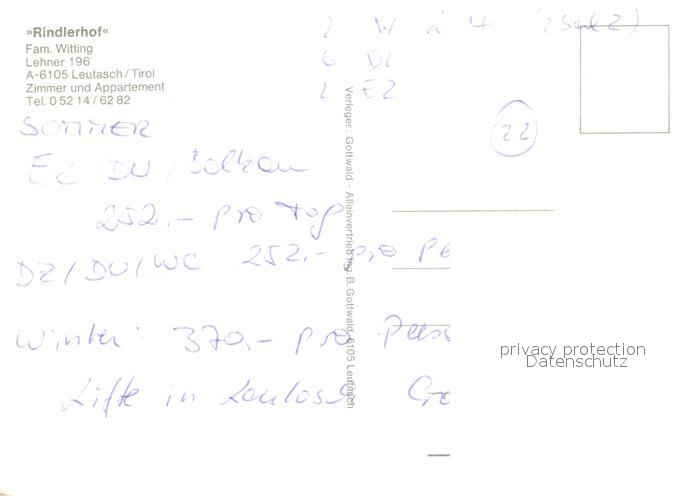 »Rindlerhof«
Fam. Witting
Lehner 196
A-6105 Leutasch/Tirol
Zimmer und Appartement
Tel. 0 52 14 / 62 82
2 W à 4
6 DZ
2 EZ
22
SOMMER
EZ/DU/Balkon
252.- pro Tag
DZ/DU/WC 252.- pro Pe
Winter: 370,- pro Pers
Lifte in Leutasch
Verleger: Gottwald - Alleinvertrieb Ing. B. Gottwald, 6105 Leutasch
privacy protection
Datenschutz